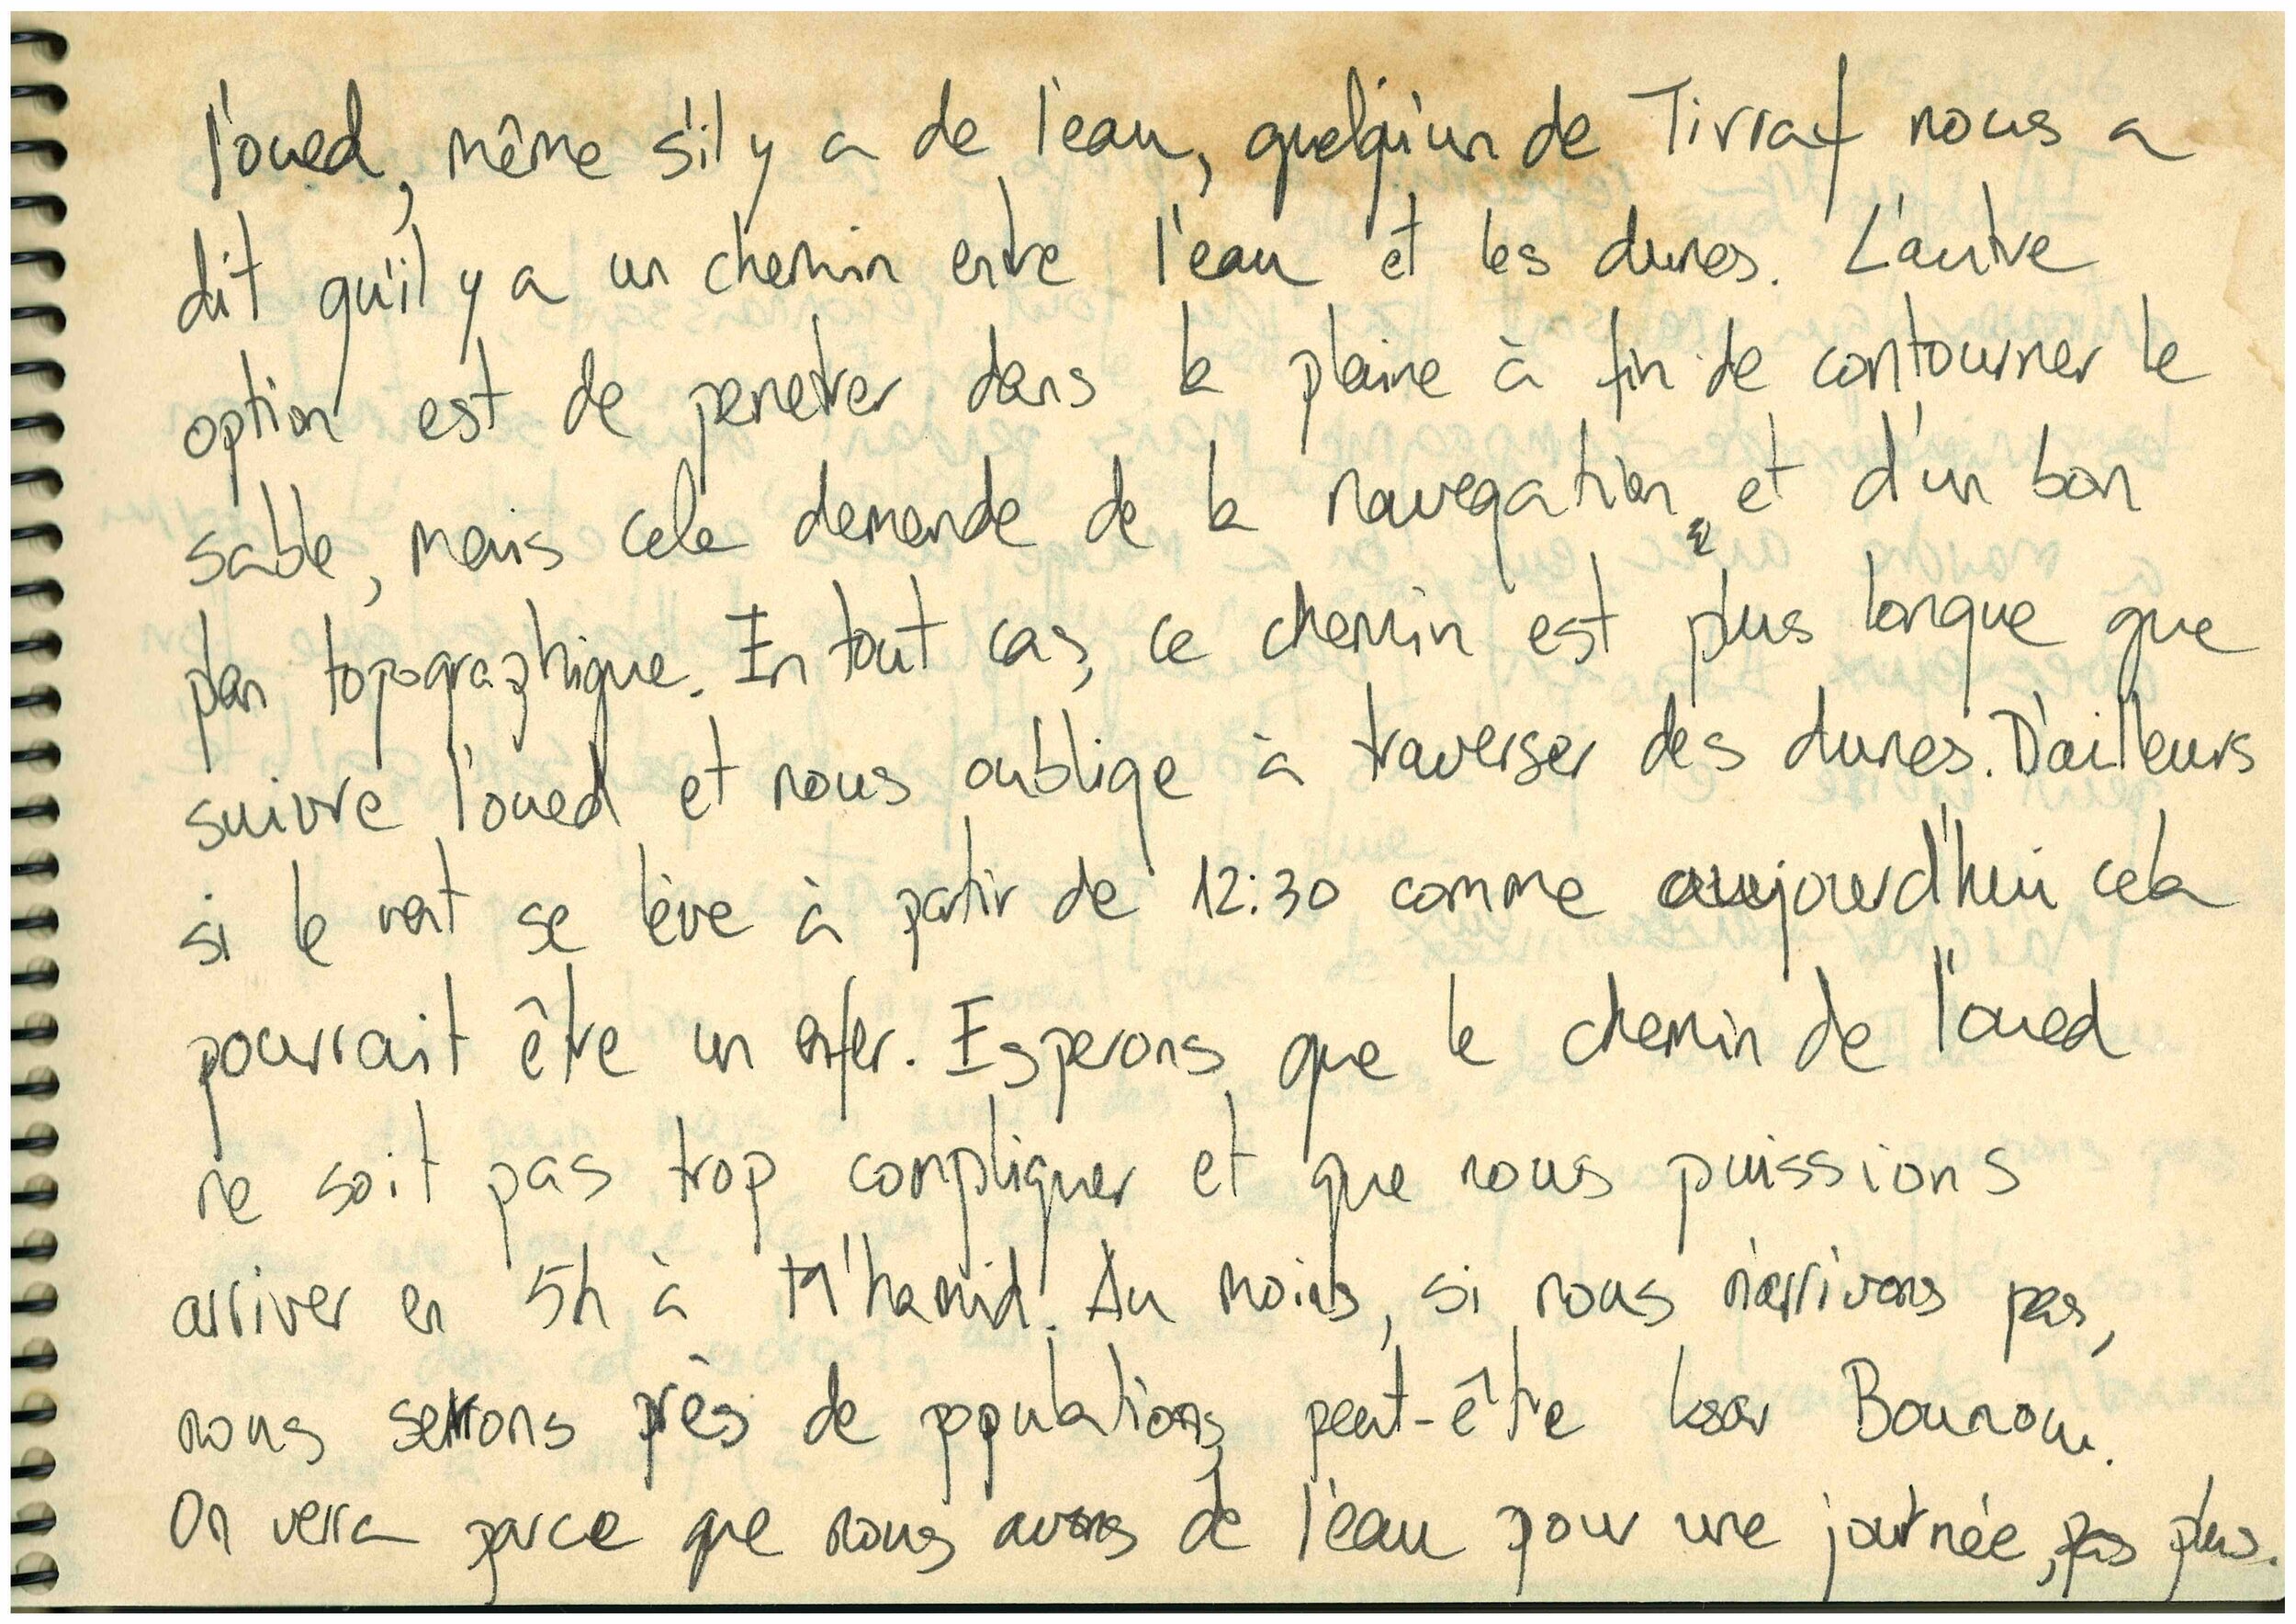 l'oued, même s'il y a de l'eau, quelqu'un de Tirraf nous a
dit qu'il y a un chemin entre l'eau et les dunes. L'autre
option est de penetrer dans la plaine à fin de contourner le
sable, mais cela demande de la navegation et d'un bon
plan topographique. En tout cas, ce chemin est plus longue que
suivre l'oued et nous oublige à traverser des dunes. D'ailleurs
si le vent se lève à partir de 12:30 comme aujourd'hui cela
pourrait être un enfer. Esperons que le chemin de l'oued
ne soit pas trop compliquer et que nous puissions
arriver en 5h à M'hamid. Au moins, si nous n'arrivons pas,
nous serrons près de populations, peut-être ksar Bounou.
On verra parce que nous avons de l'eau pour une journée, pas plus.